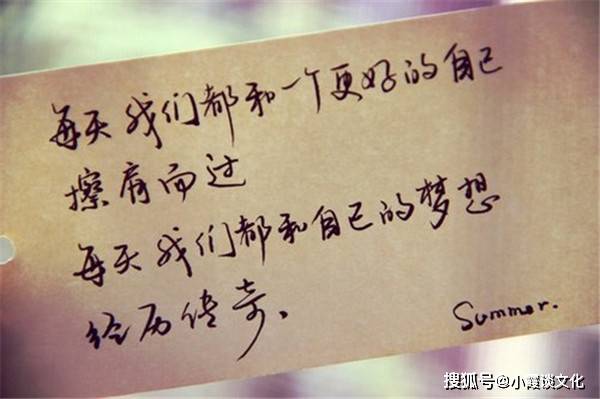 每天我们都和一个更好的自己
擦肩而过
每天我们都和自己的梦想
经历传奇。
Summer.
搜狐号@小霞谈文化